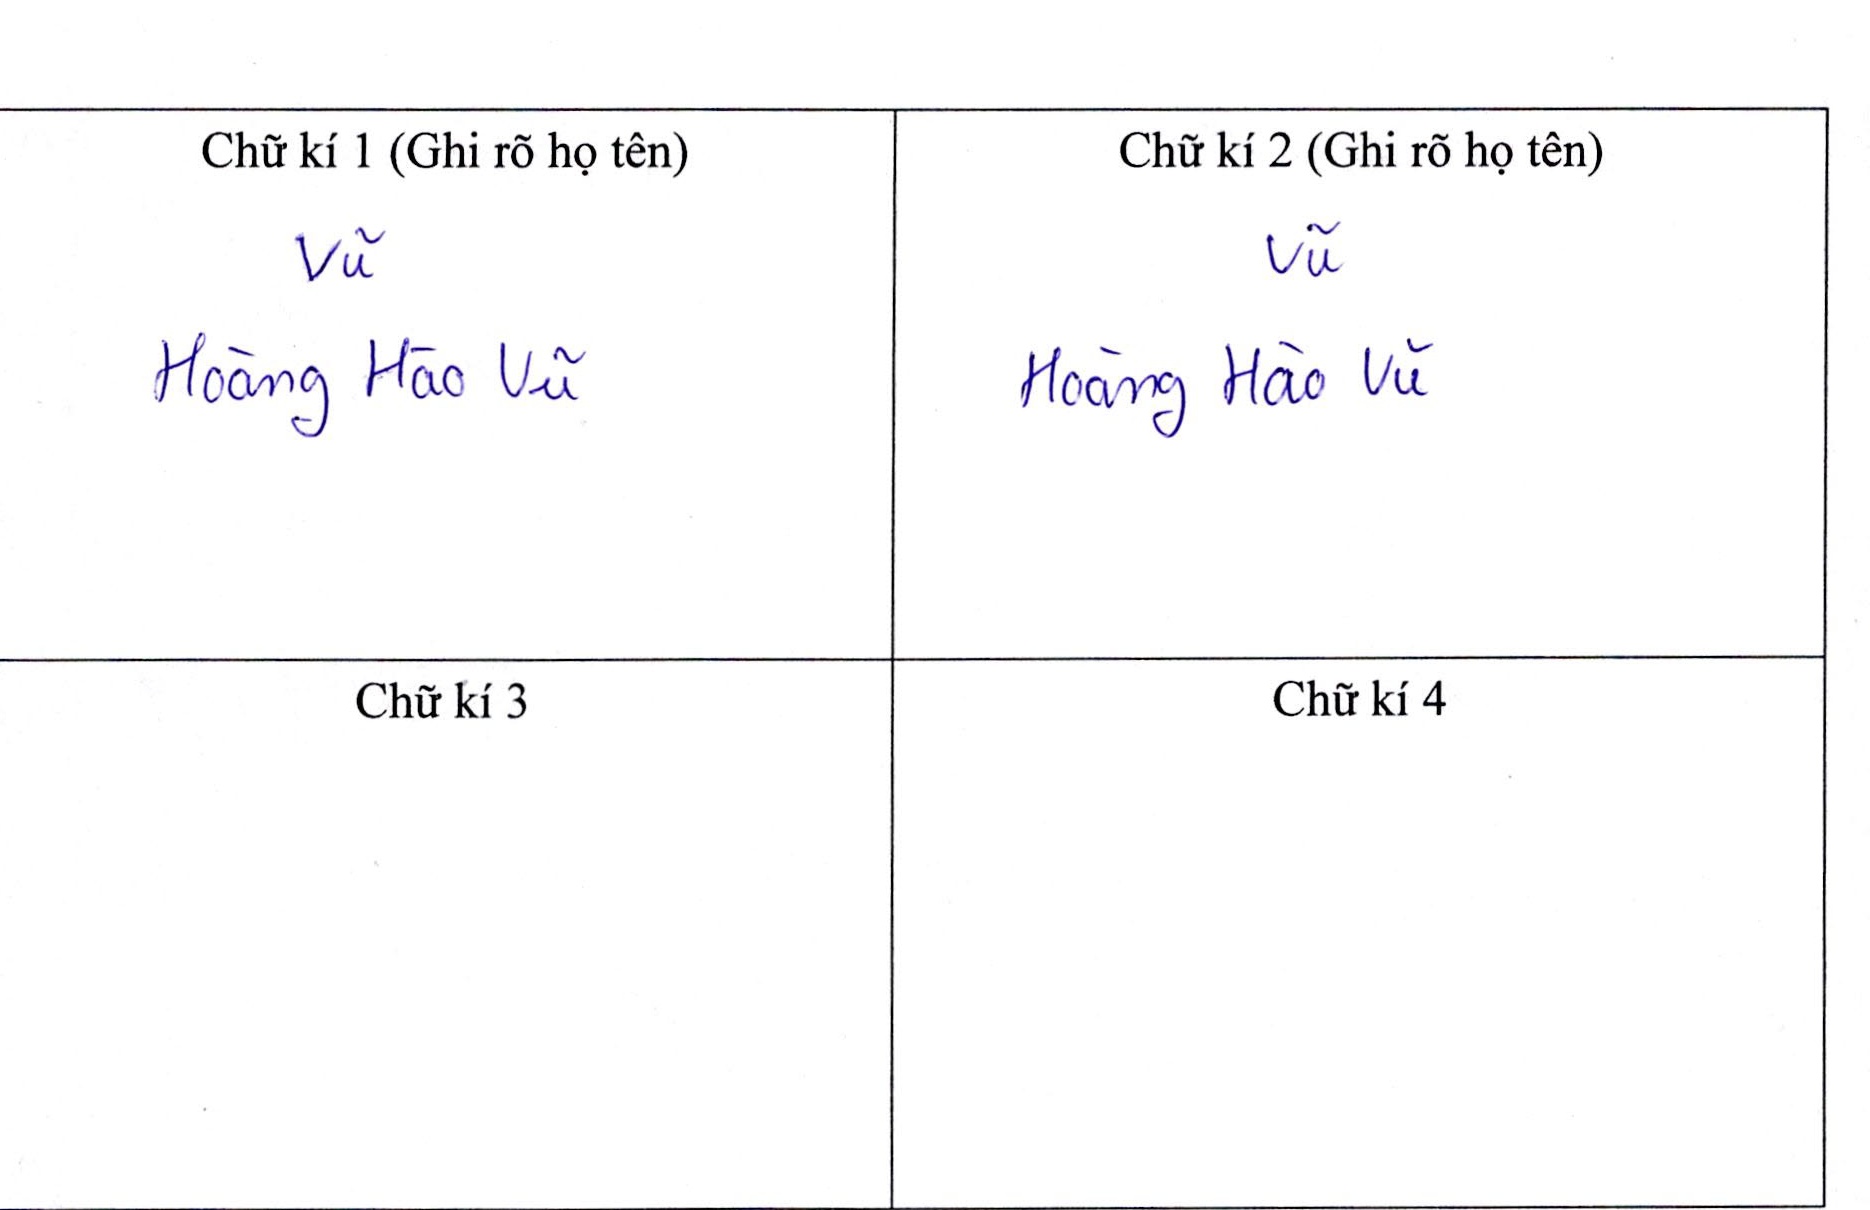 Chữ kí 1 (Ghi rõ họ tên)
Vũ
Hoàng Hāo Vũ
Chữ kí 2 (Ghi rõ họ tên)
Vũ
Hoàng Hào Vũ
Chữ kí 3
Chữ kí 4